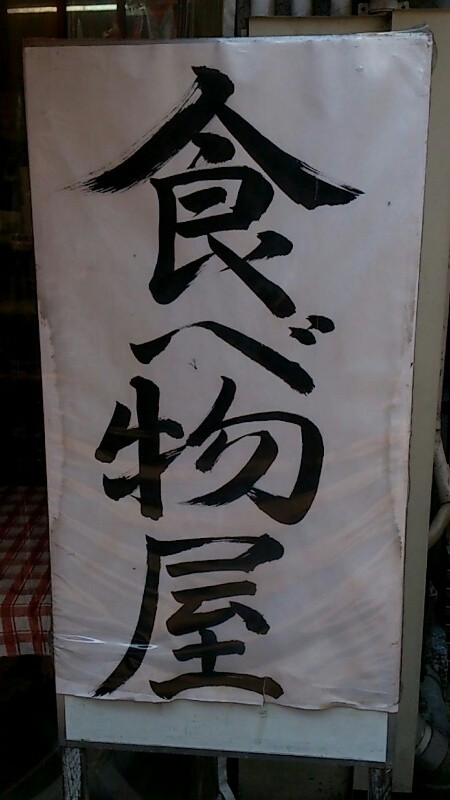 食べ物屋